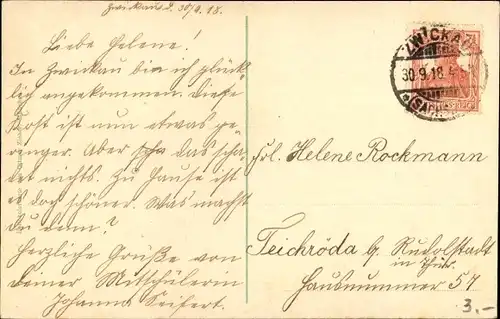 Zwickau, d. 30/9. 18.
Liebe Helene!
In Zwickau bin ich glück-
lich angekommen. Diese
Kost ist nun etwas ge-
ringer. Aber das scha-
det nichts. Zu Hause ist
es doch schöner. Was machst
Du denn?
Herzliche Grüße von
Deiner Mitschülerin
Johanna Seifert.
ZWICKAU
30.9.18.
(SACHSEN)
Frl. Helene Rockmann
Teichröda b. Rudolstadt
in Thür.
Hausnummer 57
3.-